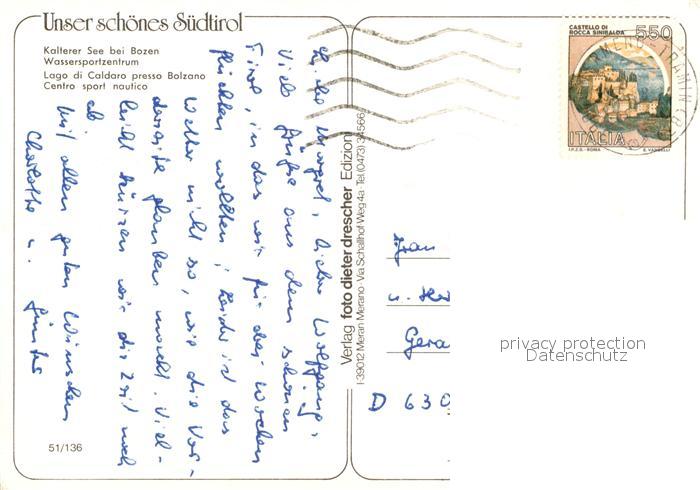 Unser schönes Südtirol
Kalterer See bei Bozen
Wassersportzentrum
Lago di Caldaro presso Bolzano
Centro sport nautico
Liebe Margret, lieber Wolfgang,
viele Grüße aus dem schönen
Tirol, in das wir für drei Wochen
flüchten wollten; leider ist das
Wetter nicht so, wie die Vor-
derseite glauben macht. Viel-
leicht kürzen wir die Zeit noch
ab.
Mit allen guten Wünschen
Charlotte u. Günter
51/136
Verlag foto dieter drescher Edizioni
I-39012 Meran Merano - Via Schallhof Weg 4a · Tel. (0473) 34566
CASTELLO DI
ROCCA SINIBALDA
550
ITALIA
I.P.Z.S. - ROMA
E. VANGELLI
Frau
u. Her
Gera
D 630
privacy protection
Datenschutz